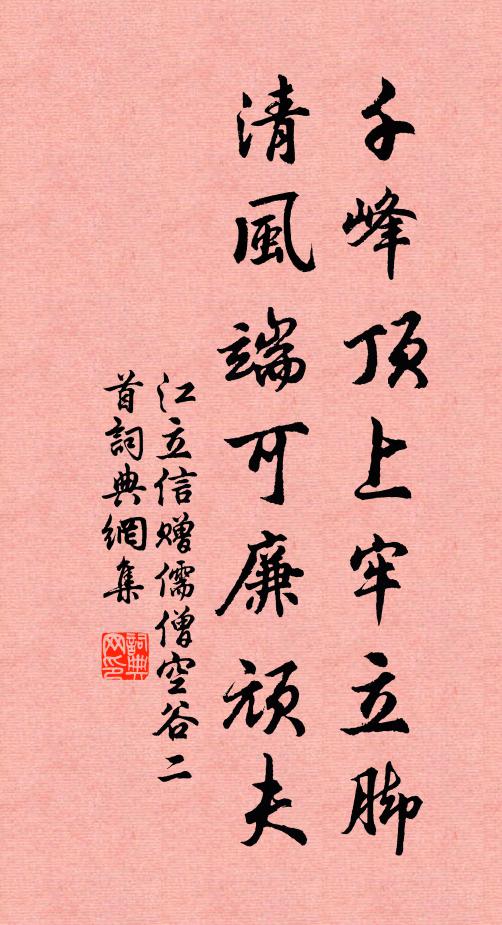 千峰顶上牢立脚
清風端可廉頑夫
江立信贈儒僧空谷二
首詞典網集
詞典
网印